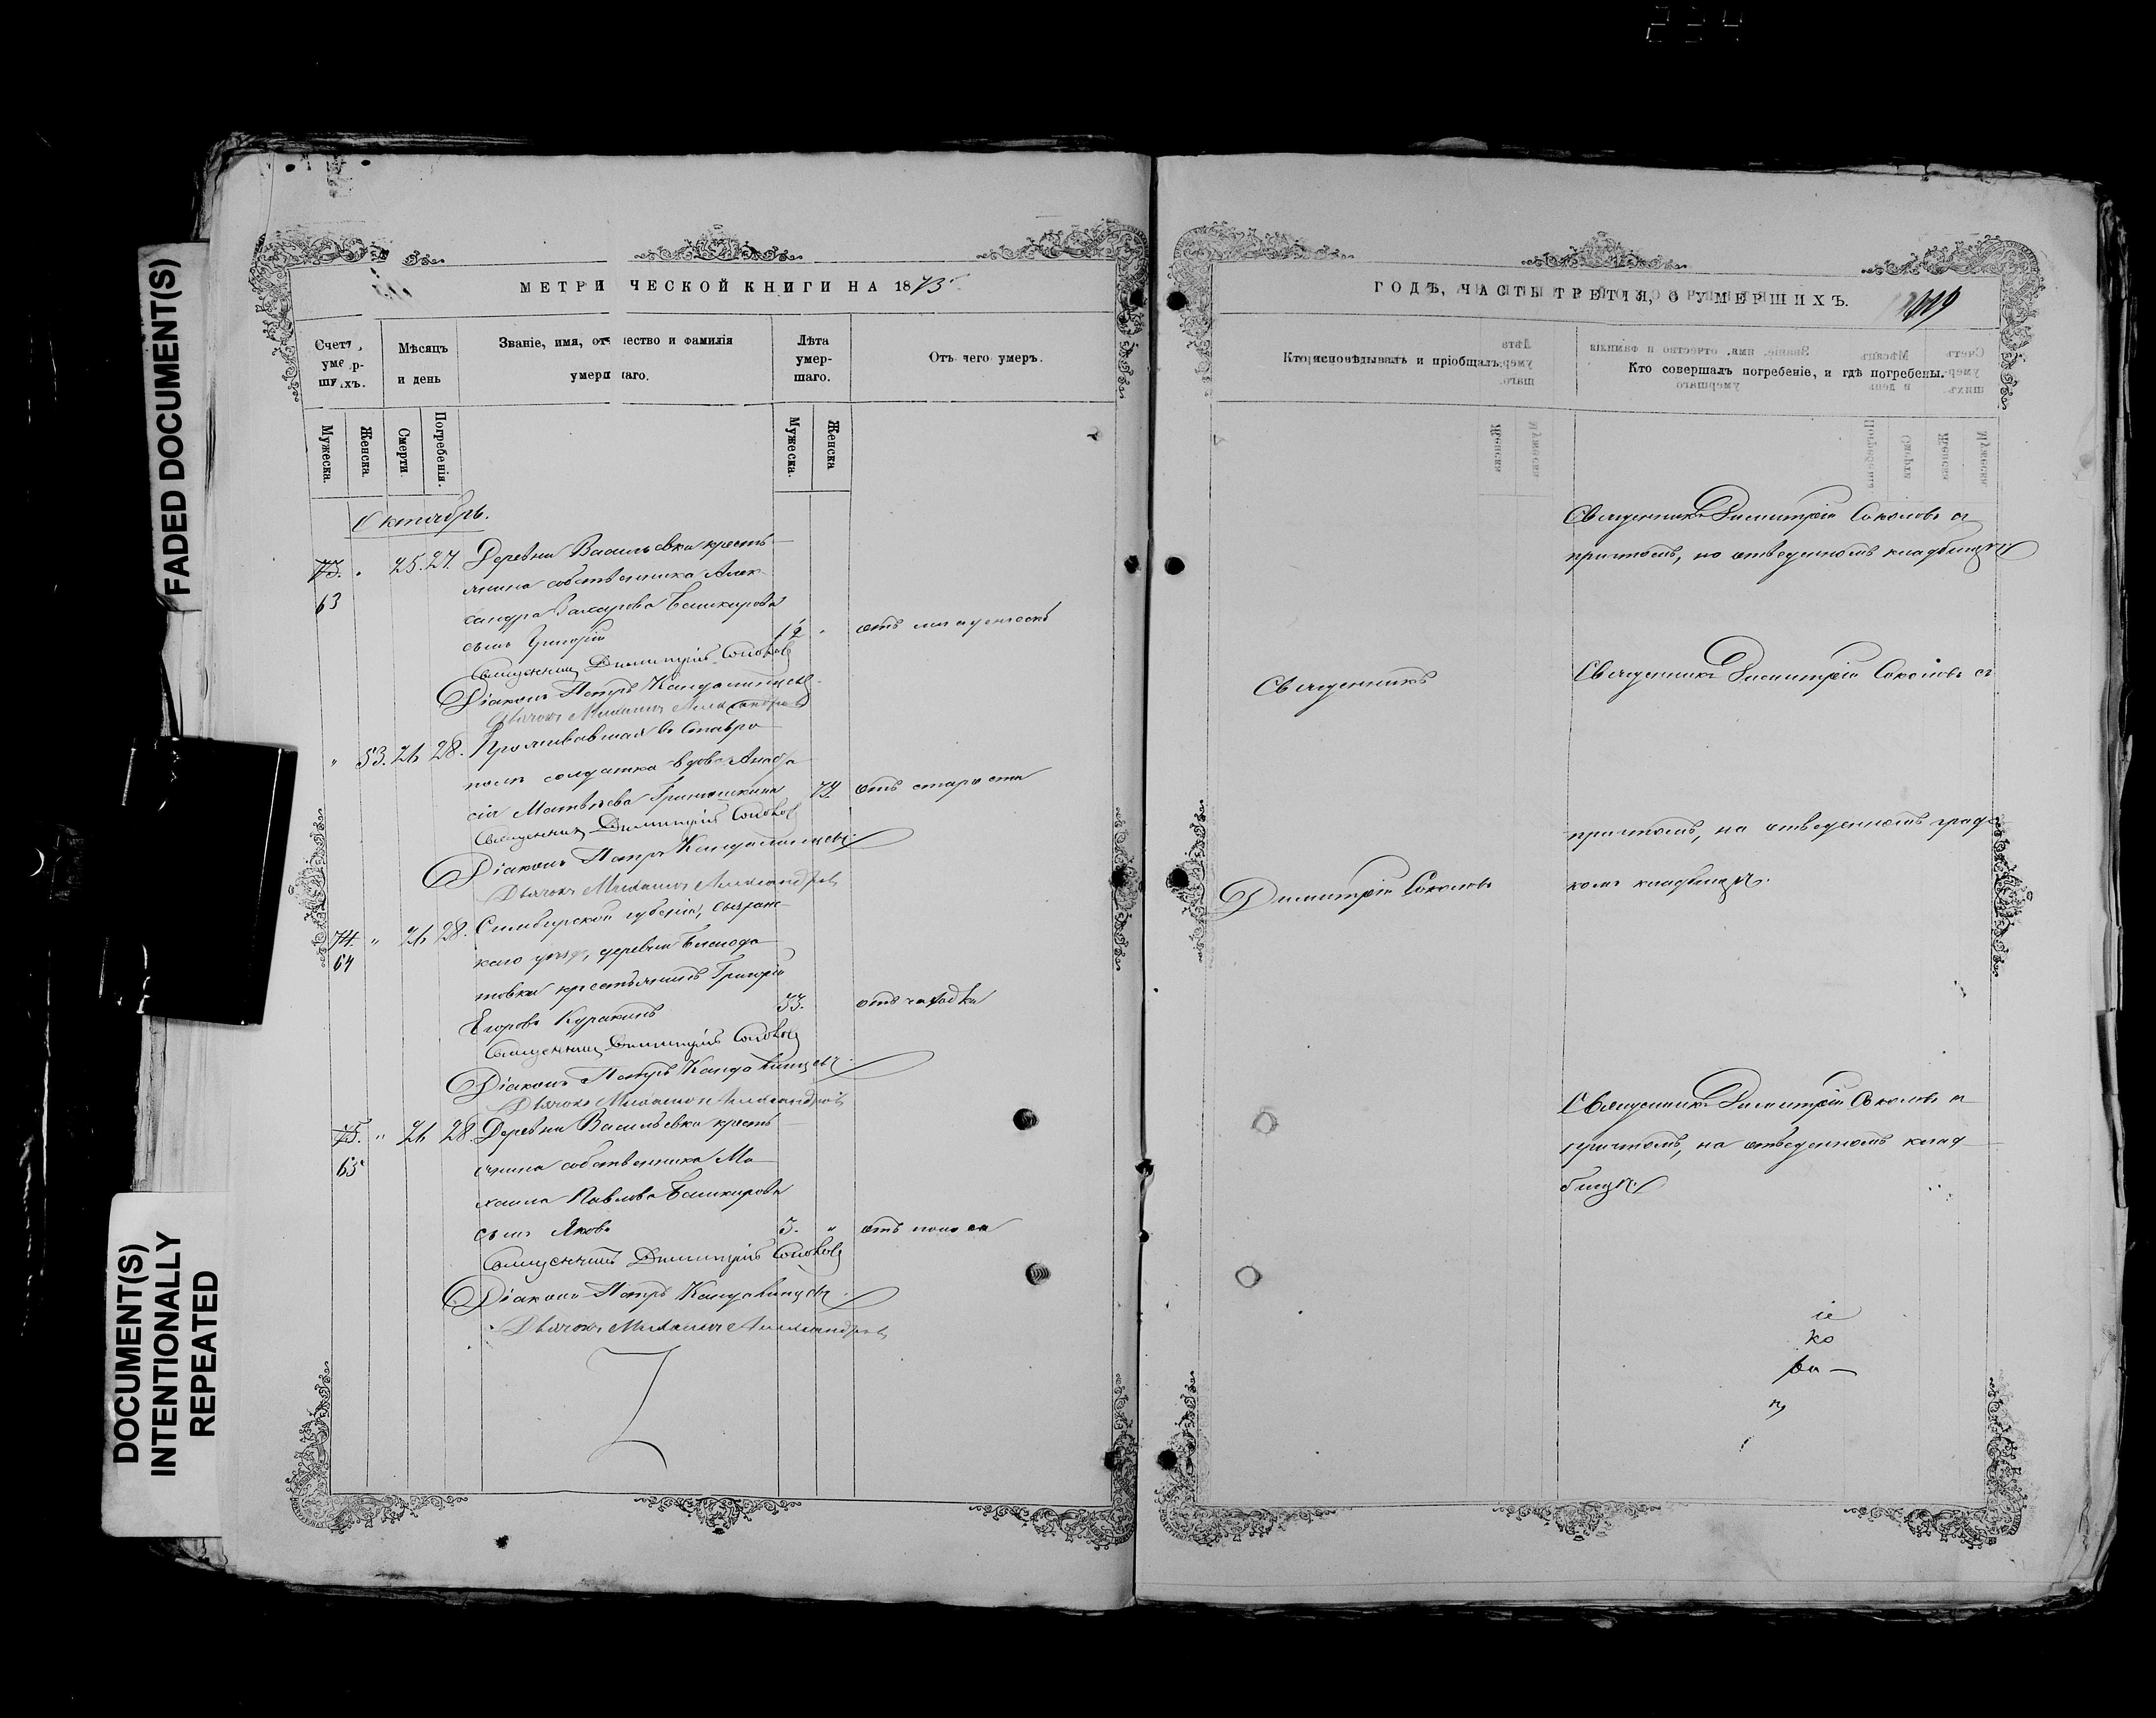 FADED DOCUMENT(S)
DOCUMENT(S)
INTENTIONALLY
REPEATED
МЕТРИЧЕСКОЙ КНИГИ НА 1873
Счетъ умершихъ.
Мѣсяцъ и день
Званіе, имя, отчество и фамилія умершаго.
Лѣта умершаго.
Отъ чего умеръ.
Мужеска.
Женска.
Смерти.
Погребенія.
Мужеска.
Женска
Октябрь.
73. 25. 27. Деревни Васильевки кресть-
63 янина собственника Алек-
сандра Захарова Башкирова
сынъ Григорій
Священникъ Димитрій Соколовъ
Діаконъ Петръ
Дьячокъ Михаилъ Александровъ
53. 26 28. Проживавшая въ Ставро-
полѣ солдатка вдова
Матвѣева 74 отъ старости
Священникъ Димитрій Соколовъ
Діаконъ Петръ
Дьячокъ Михаилъ Александровъ
74. 26 28. Симбирской губерніи, Сызран-
64 скаго уѣзда, деревни
крестьянинъ Григорій
Егоровъ Куракинъ 33. отъ чахотки
Священникъ Димитрій Соколовъ
Діаконъ Петръ
Дьячокъ Михаилъ Александровъ
75. 26 28. Деревни Васильевки кресть-
65 янина собственника Ми-
хаила Павлова Башкирова
сынъ Яковъ 3. отъ поноса
Священникъ Димитрій Соколовъ
Діаконъ Петръ
Дьячокъ Михаилъ Александровъ
ГОДЪ, ЧАСТЬ ТРЕТІЯ, О УМЕРШИХЪ.
Кто исповѣдывалъ и пріобщалъ.
Кто совершалъ погребеніе, и гдѣ погребены.
Священникъ Димитрій Соколовъ съ
причтомъ, на отведенномъ кладбищѣ
Священникъ
Священникъ Димитрій Соколовъ съ
причтомъ, на отведенномъ градс-
Димитрій Соколовъ
комъ кладбищѣ.
Священникъ Димитрій Соколовъ съ
причтомъ, на отведенномъ клад-
бищѣ.
іе
ко